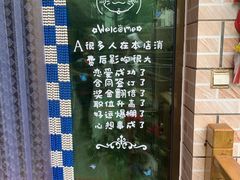 Welcome
A很多人在本店消
费后影响很大
恋爱成功了
合同签订了
奖金翻倍了
职位升高了
好运爆棚了
心想事成了